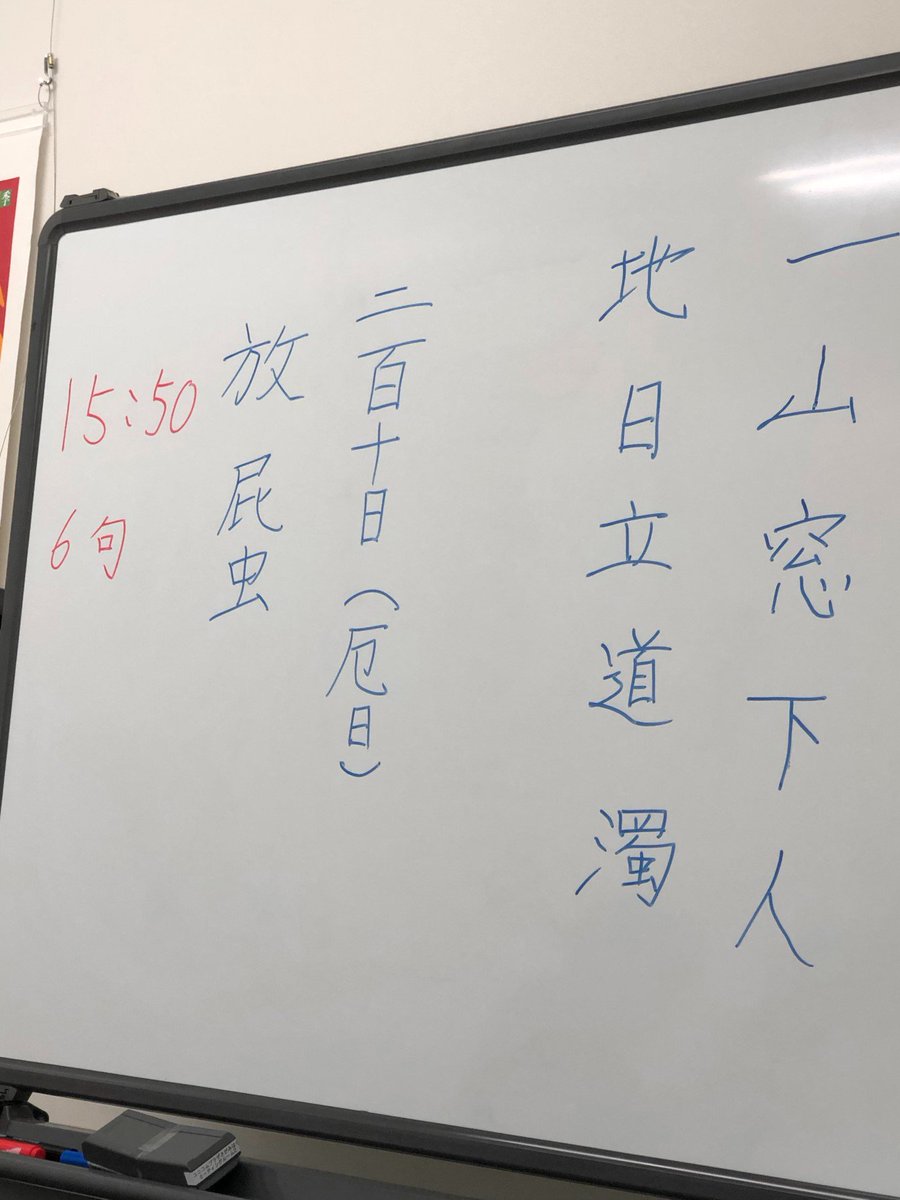 一山窓下人
地日立道濁
二百十日（厄日）
放屁虫
15:50
6句